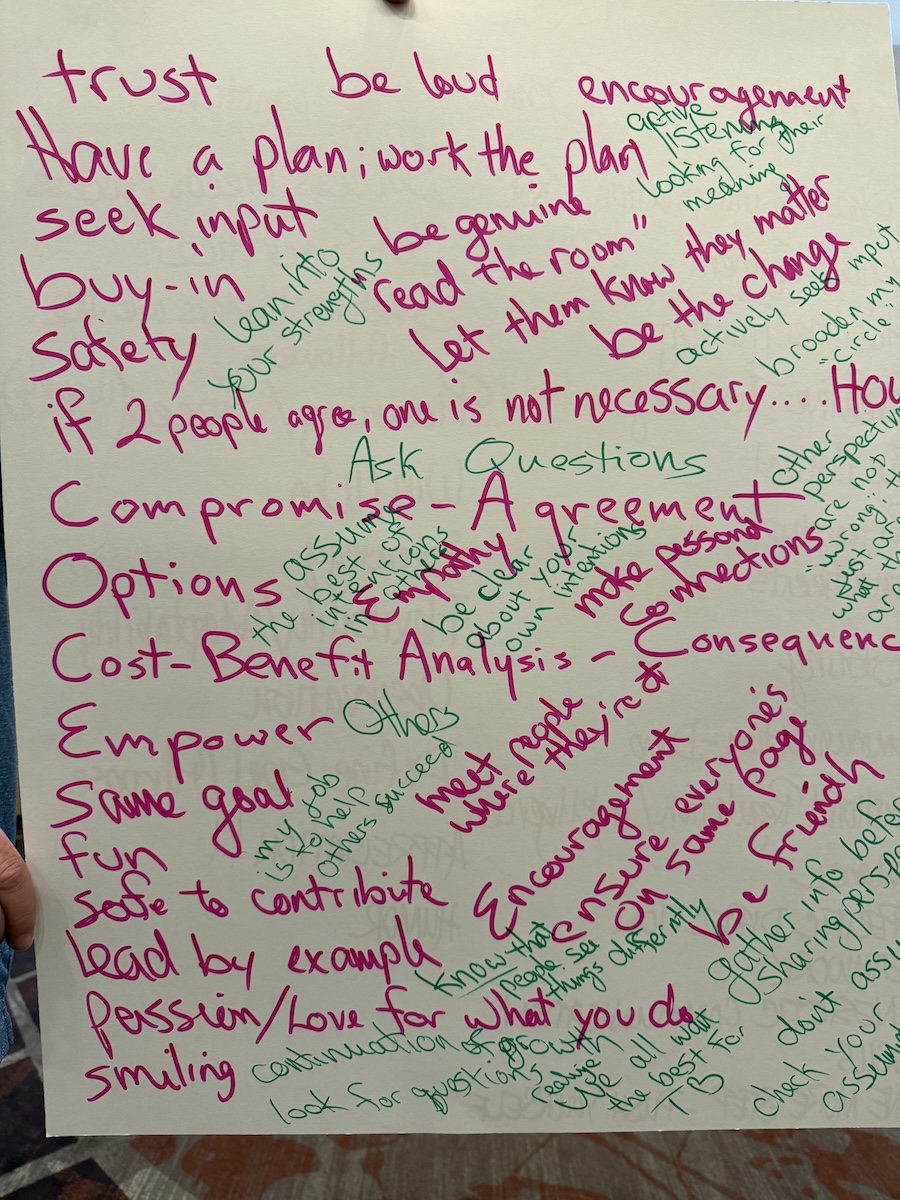 trust be loud encouragement
Have a plan; work the plan
active
listening
looking for their
meaning
seek input
be genuine
buy-in
lean into
your strengths
read the room"
let them know they matter
be the change
Safety
actively seek input
broaden my
"circle
if 2 people agree, one is not necessary....
Ask Questions
Compromise - Agreement
other
perspective
are not
"wrong"
just
what
are
Options
assume
the best of
intentions
in others
Empathy
be clear
about your
own intentions
make personal
connections
Cost-Benefit Analysis - Consequenc
Empower Others
meet people
where they're at
same goal
my job
is to help
others succeed
fun
Encouragement
ensure everyone's
on same page
be friendly
safe to contribute
Lead by example
know that
people see
things differently
gather info befor
sharing persp
Passion/Love for what you do
don't assu
check your
assum
smiling
continuation of growth
look for questions
realize
we all want
the best for
TB